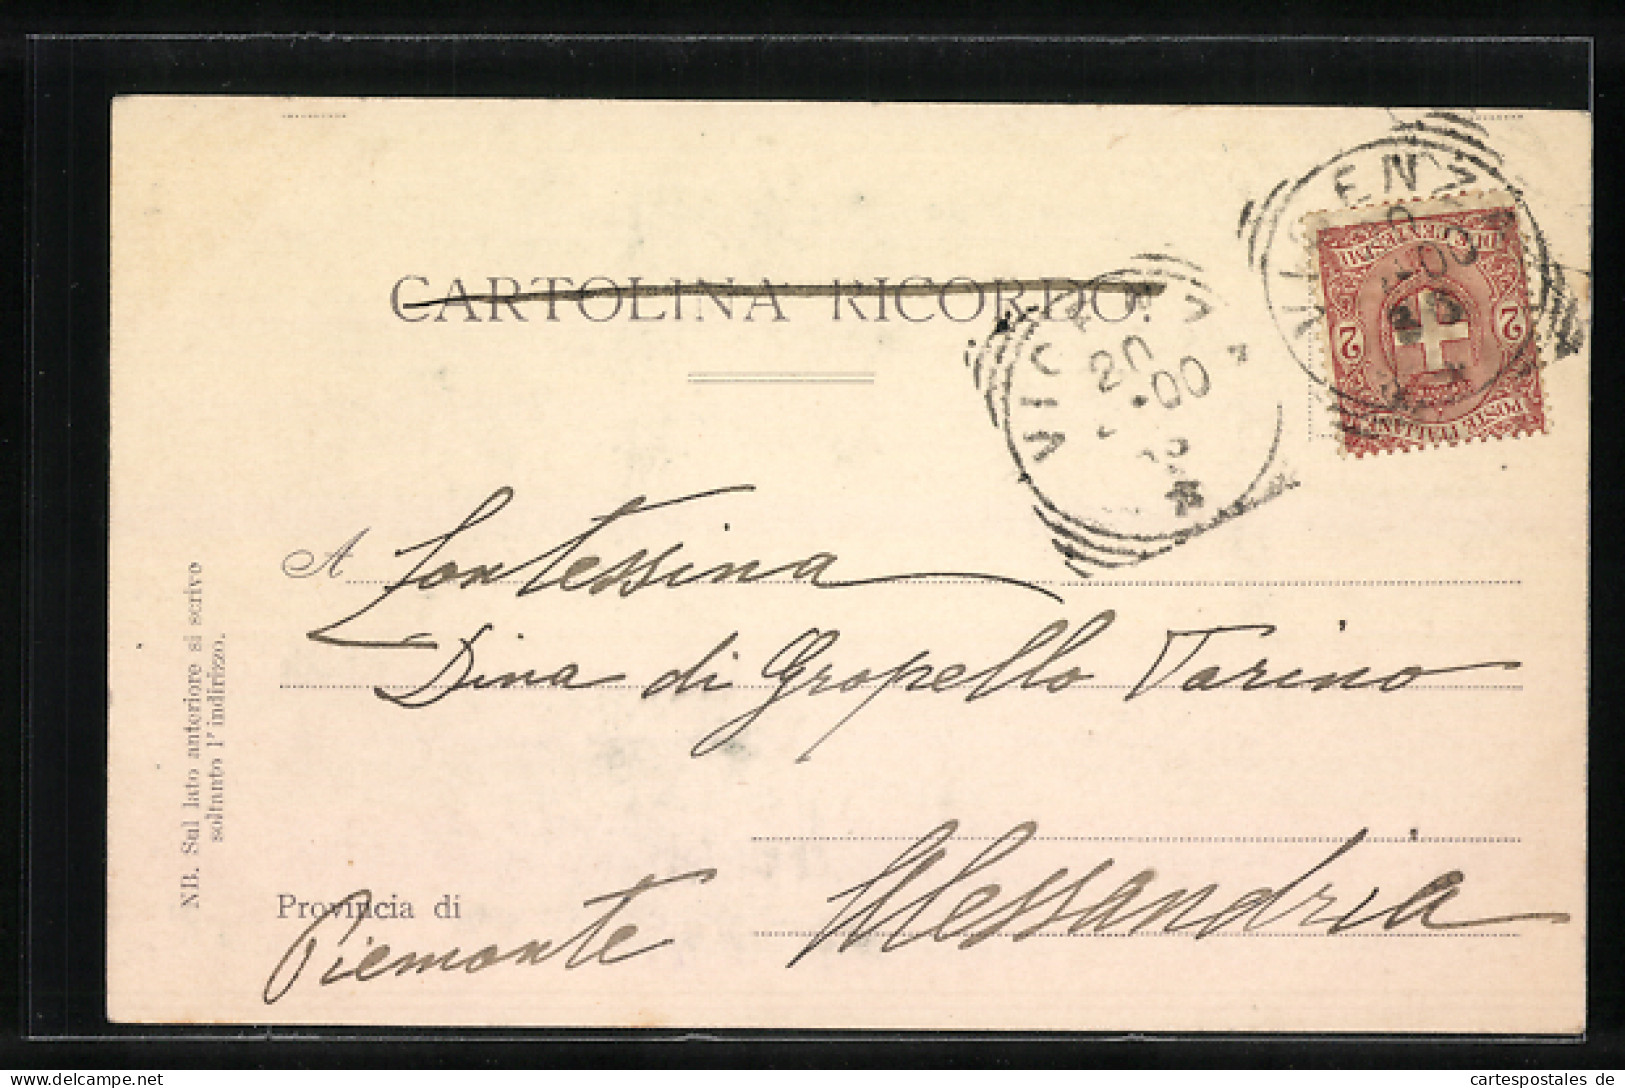 CARTOLINA RICORDO.
VICENZA
20
00
VICENZA
00
DUE CENTESIMI
2 2
POSTE ITALIANE
A Contessina
Dina di Gropello Tarino
Alessandria
Provincia di
Piemonte
NB. Sul lato anteriore si scrivo
soltanto l'indirizzo.
cartespostales de